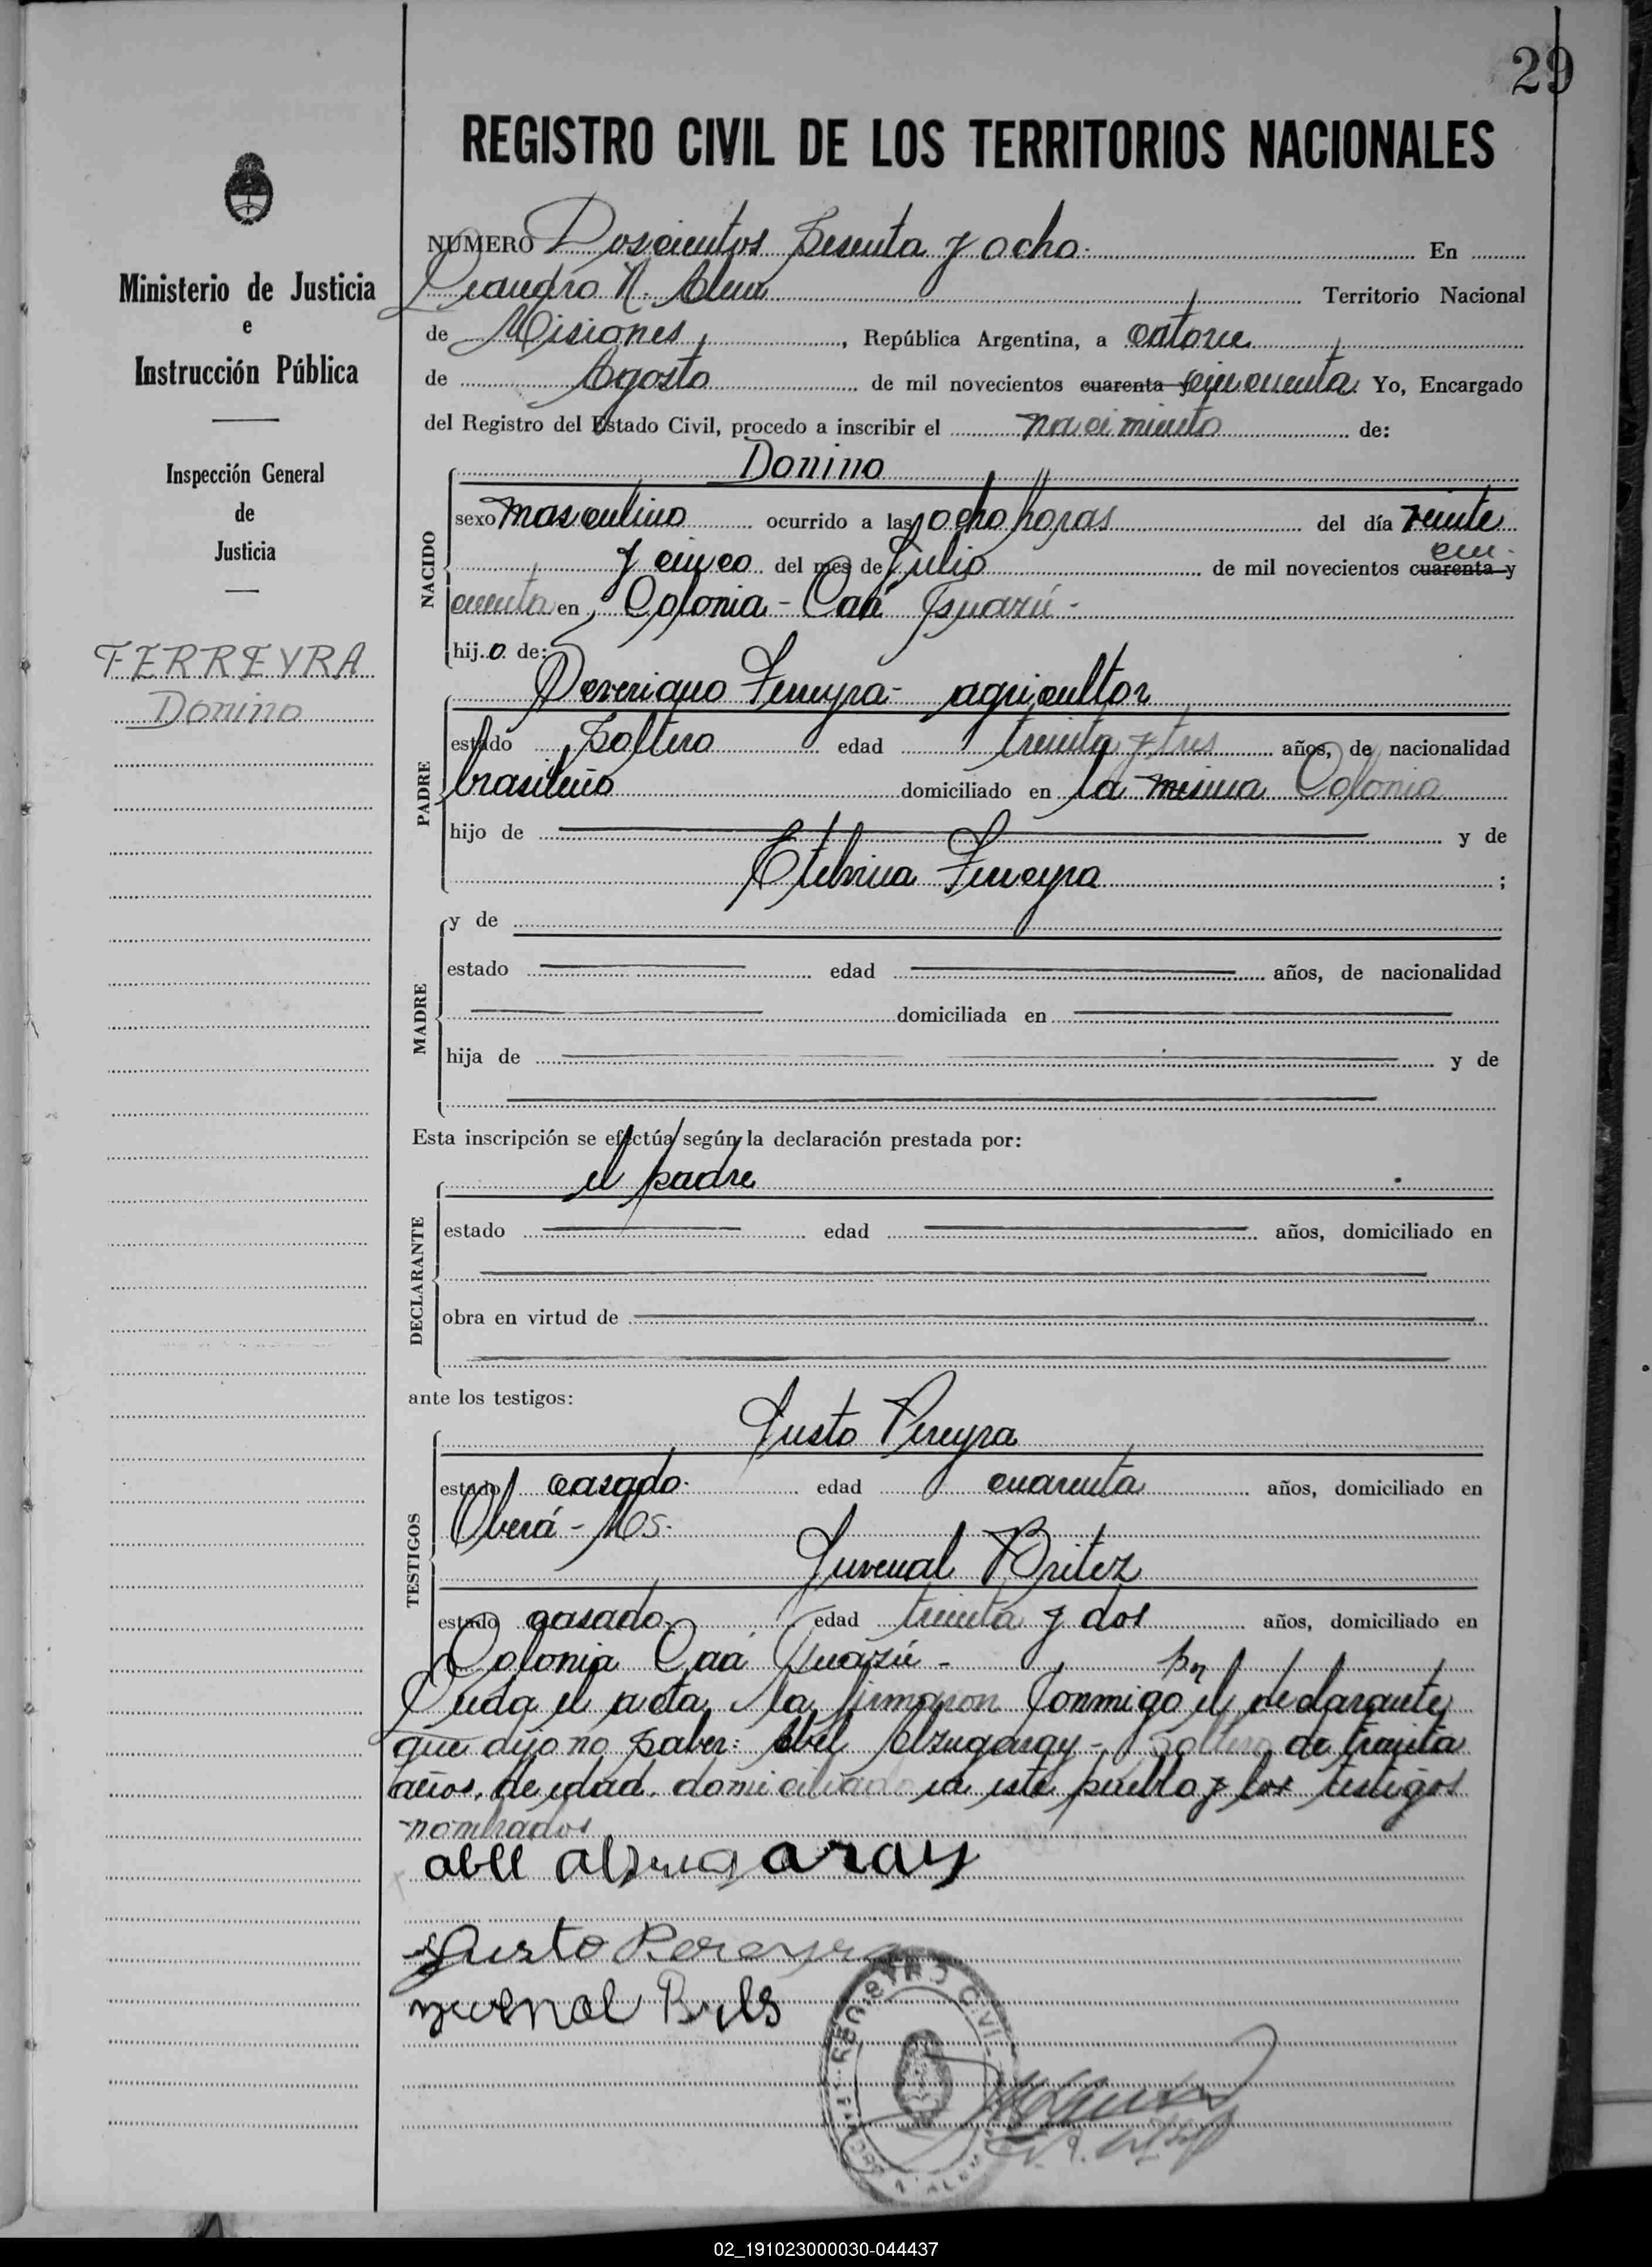 29
REGISTRO CIVIL DE LOS TERRITORIOS NACIONALES
Ministerio de Justicia
e
Instrucción Pública
Inspección General
de
Justicia
FERREYRA
Donino
NUMERO Doscientos sesenta y ocho. En
Leandro N. Alem Territorio Nacional
de Misiones, República Argentina, a catorce
de Agosto de mil novecientos cuarenta y cincuenta. Yo, Encargado
del Registro del Estado Civil, procedo a inscribir el nacimiento de:
Donino
NACIDO
sexo masculino ocurrido a las ocho horas del día veinte
y cinco del mes de Julio de mil novecientos cuarenta y cin-
cuenta en Colonia - Caá Guazú -
hijo de:
PADRE
Severiano Ferreyra - agricultor
estado soltero edad treinta y tres años, de nacionalidad
brasileño domiciliado en la misma Colonia
hijo de y de
Etelvina Ferreyra ;
MADRE
y de
estado edad años, de nacionalidad
domiciliada en
hija de y de
Esta inscripción se efectúa según la declaración prestada por:
DECLARANTE
el padre
estado edad años, domiciliado en
obra en virtud de
ante los testigos:
TESTIGOS
Justo Pereyra
estado casado. edad cuarenta años, domiciliado en
Oberá - Ms.
Juvenal Britez
estado casado. edad treinta y dos años, domiciliado en
Colonia Caá Guazú -
Leida el acta, la firmaron conmigo pr el declarante
que dijo no saber: Abel Alzugaray - soltero de treinta
años, de edad. domiciliado en este pueblo y los testigos
nombrados
abel alzugaray
Justo Pereyra
REGISTRO CIVIL
02_191023000030-044437